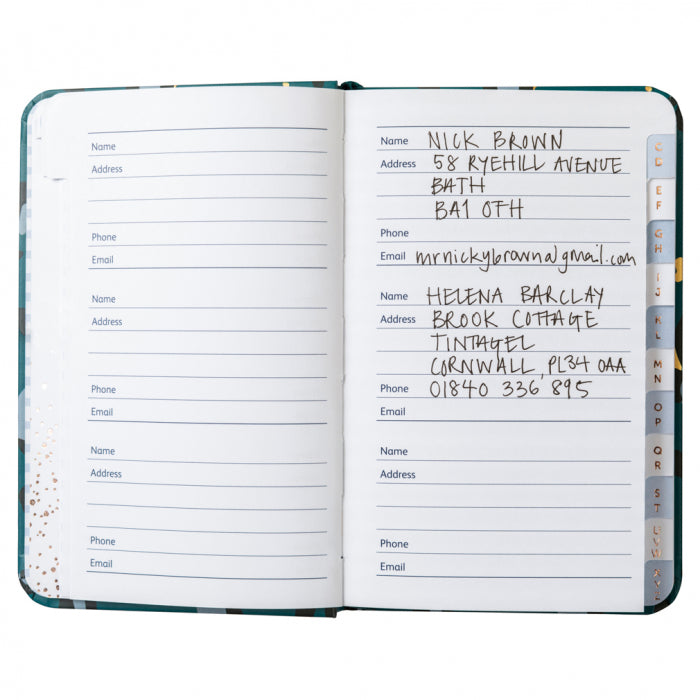 Name
Address
Phone
Email
Name
Address
Phone
Email
Name
Address
Phone
Email
Name NICK BROWN
Address 58 RYEHILL AVENUE
BATH
BA1 0TH
Phone
Email mrnickybrown@gmail.com
Name HELENA BARCLAY
Address BROOK COTTAGE
TINTAGEL
CORNWALL, PL34 0AA
Phone 01840 336 895
Email
Name
Address
Phone
Email
C
D
E
F
G
H
I
J
K
L
M
N
O
P
Q
R
S
T